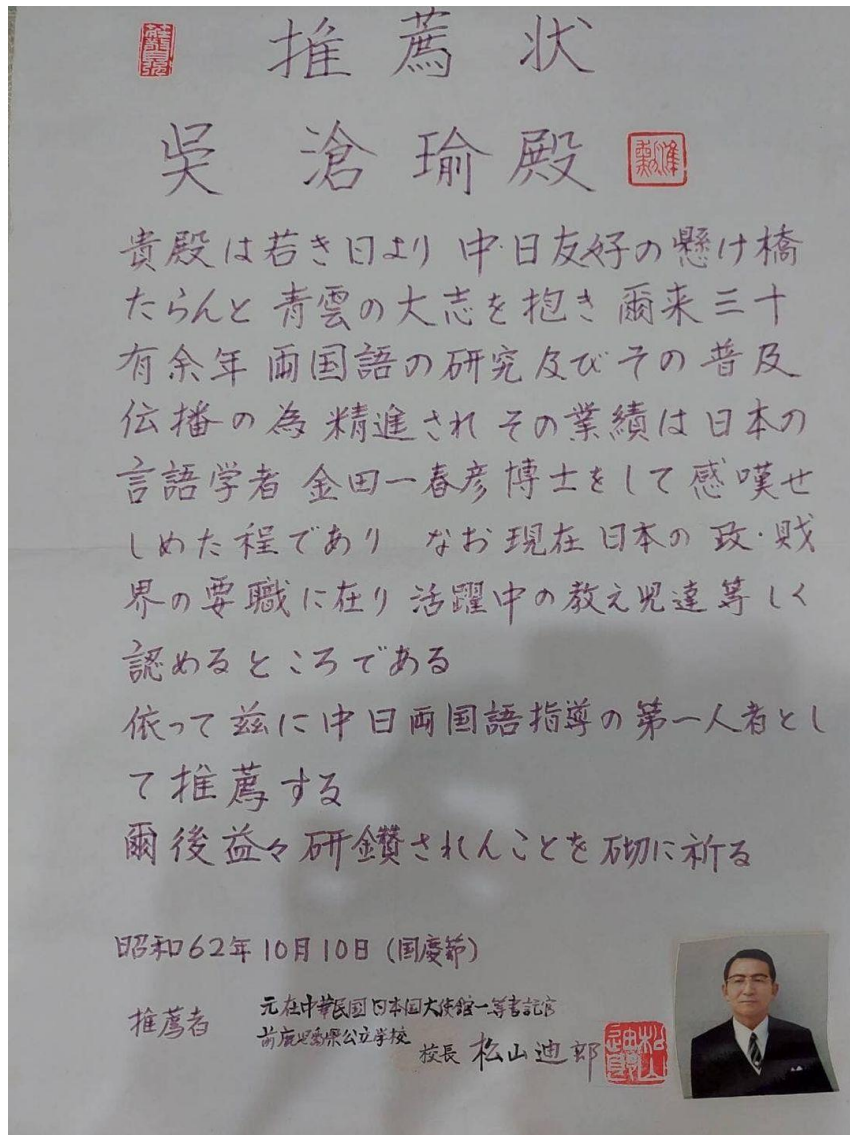 推薦状
吳滄瑜殿
貴殿は若き日より 中·日友好の懸け橋
たらんと 青雲の大志を抱き 爾来三十
有余年 両国語の研究及びその普及
伝播の為 精進され その業績は日本の
言語学者 金田一春彦博士をして感嘆せ
しめた程であり なお現在日本の政·財
界の要職に在り 活躍中の教え児達等しく
認めるところである
依って茲に中日両国語指導の第一人者とし
て推薦する
爾後益々研鑽されんことを切に祈る
昭和62年10月10日(国慶節)
推薦者
元在中華民国日本国大使館一等書記官
前鹿児島県公立学校
校長 松山迪郎